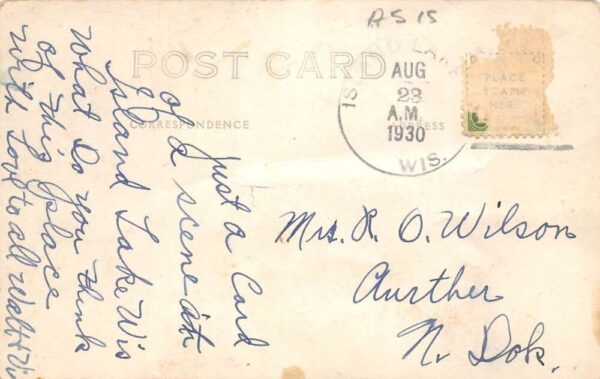 AS 15
POST CARD
CORRESPONDENCE
ADDRESS
PLACE
STAMP
HERE
ISLAND LAKE
AUG
23
A.M.
1930
WIS.
Just a Card
of a scene at
Island Lake Wis
What do you think
of this place
With Love to all Walt & Vi
Mrs. R. O. Wilson
Aurther
N. Dok.